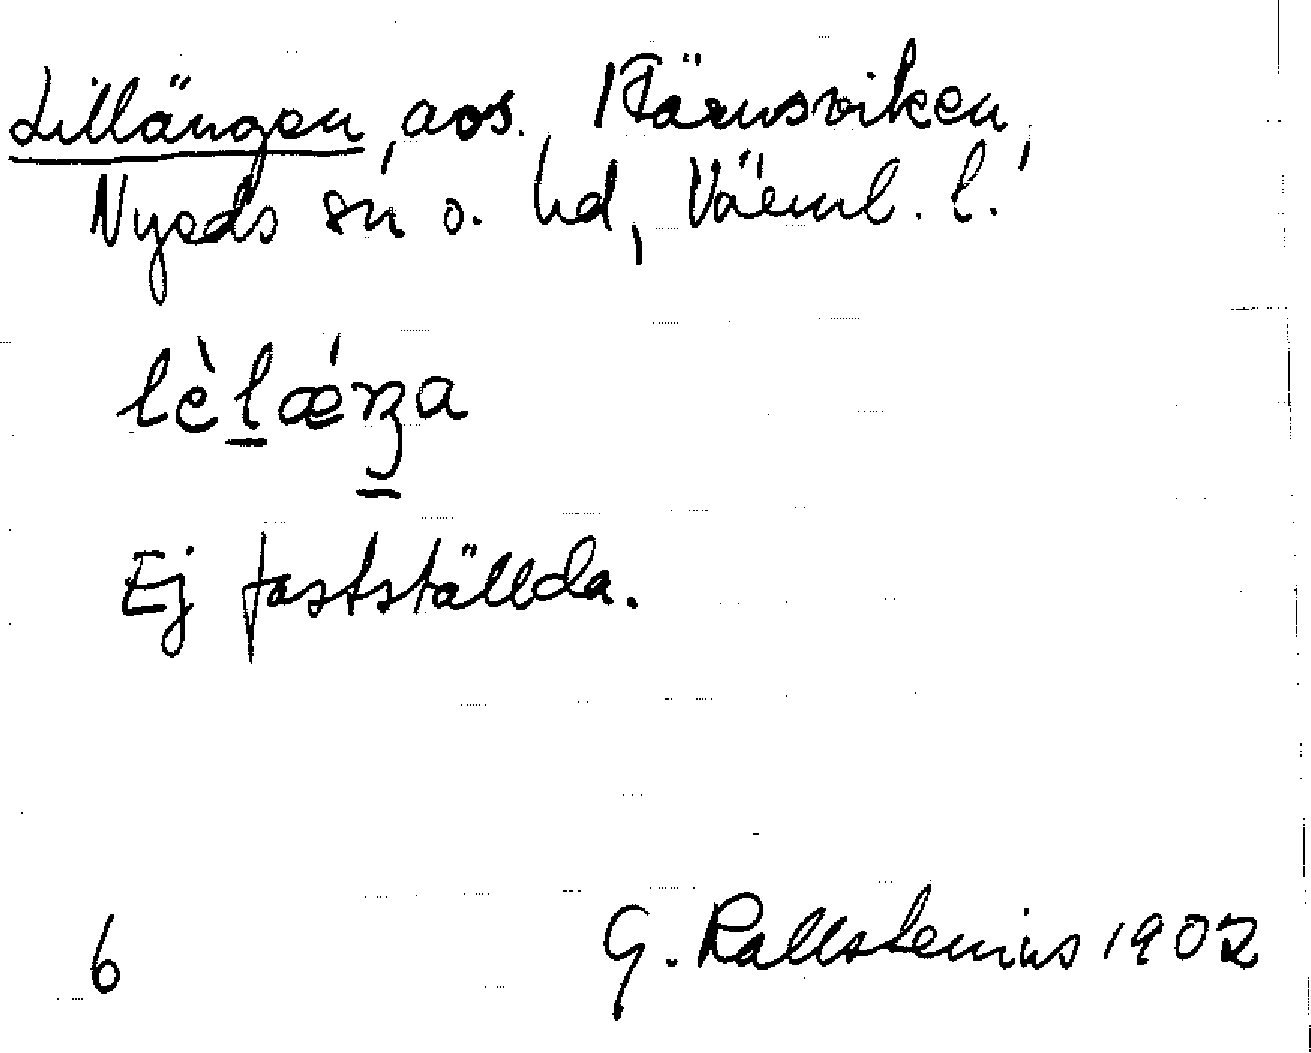 Lillängen, avs. Färnsviken,
Nyeds sn o. hd, Värml. l.
lèl̲ǽŋ̲a
Ej fastställda.
6 G. Kallstenius 1902